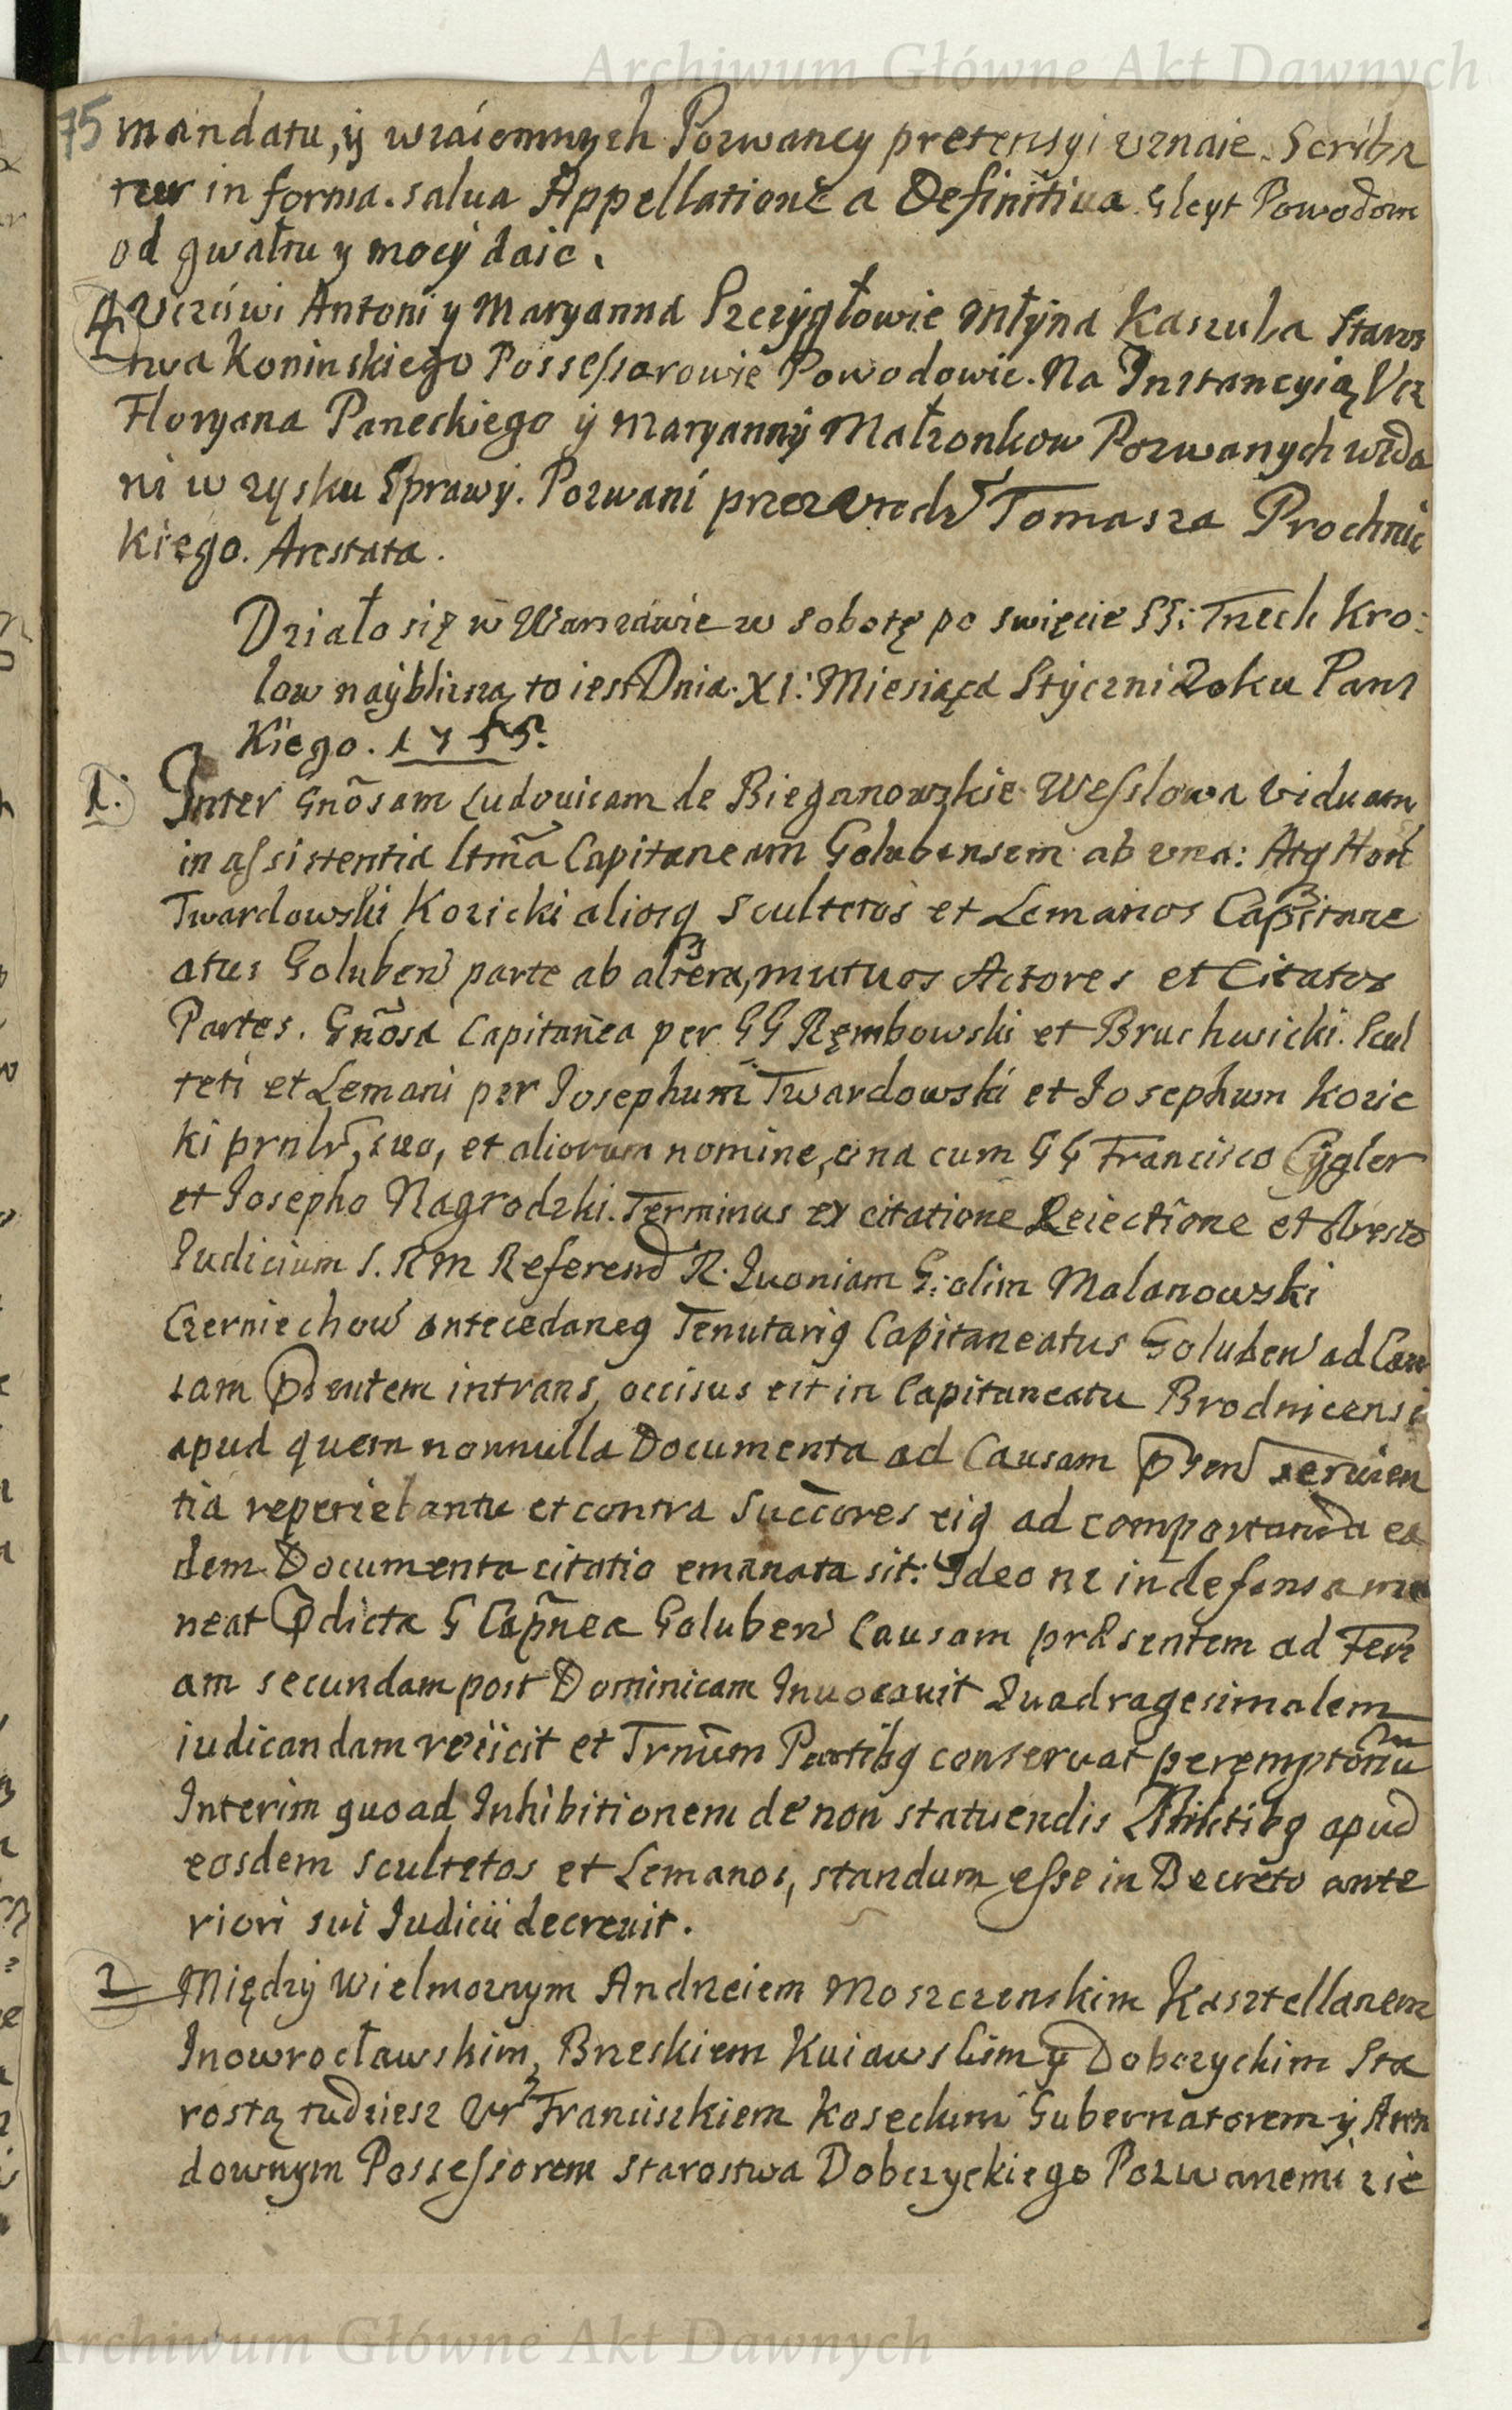 Archiwum Główne Akt Dawnych
75 mandatu, ÿ wzaiemnych Pozwancy pretensyi uznaie. Scriba
tur in forma. salua Appellatione a Definitiua Gleyt Powodom
od gwałtu y mocÿ daie.
4. Uczciwi Antoni y Maryanna Szczÿgłowie Młÿna Kaszuba Staros
twa Koninskiego Possessorowie Powodowie. Na Instancyią Ucz
Floryana Paneckiego ÿ Maryannÿ Małzonkow Pozwanych wzda
ni w zysku Sprawÿ. Pozwani przez Tomasza Prochnic
kiego. Arestata.
Działo się w Warszawie w sobotę po swięcie SS: Trzech Kro:
low naÿblizszą to iest Dnia XI: Miesiąca Stÿcznia Roku Pans
kiego. 1755.
1. Inter Gnosam Ludouicam de Bieganowskie Wesslowa Viduam
in assistentia Ltma Capitaneam Golubensem ab una: Atq Hon
Twardowski Kozicki aliosq Scultetos et Lemanos Capitane
atus Goluben parte ab altera, mutuos Actores et Citatos
Partes. Gnosa Capitanea per GG Rembowski et Bruchwicki. Scul
teti et Lemani per Josephum Twardowski et Josephum Kozic
ki prnlr, suo, et aliorum nomine, una cum GG Francisco Cÿgler
et Josepho Nagrodzki. Terminus ex citatione Reiectione et Aresto
Judicium S. R M Referend R. Quoniam G: olim Malanowski
Czerniechow antecedaneq Tenutariq Capitaneatus Goluben ad Cau
sam Psentem intrans, occisus est in Capitaneatu Brodnicensi
apud quem nonnulla Documenta ad Causam psen seruien
tia reperiebantu et contra Succores eiq ad comportanda ea
dem Documenta citatio emanata sit: Ideo ne indefensa ma
neat Pdicta G Capnea Goluben Causam præsentem ad Feri
am secundam post Dominicam Inuocauit Quadragesimalem
iudicandam reiicit et Trnum Partibq conseruat peremptoriu
Interim quoad Inhibitionem de non statuendis Militibq apud
eosdem Scultetos et Lemanos, standum esse in Decreto ante
riori sui Judicii decreuit.
2 Międzÿ Wielmoznym Andrzeiem Moszczenskim Kasztellanem
Inowrocławskim, Brzeskiem Kuiawskim ÿ Dobczyckim Sta
rostą tudziesz Ur Franciszkiem Koseckim Gubernatorem ÿ Aren
downÿm Possessorem Starostwa Dobczyckiego Pozwanemi zie
Archiwum Główne Akt Dawnych